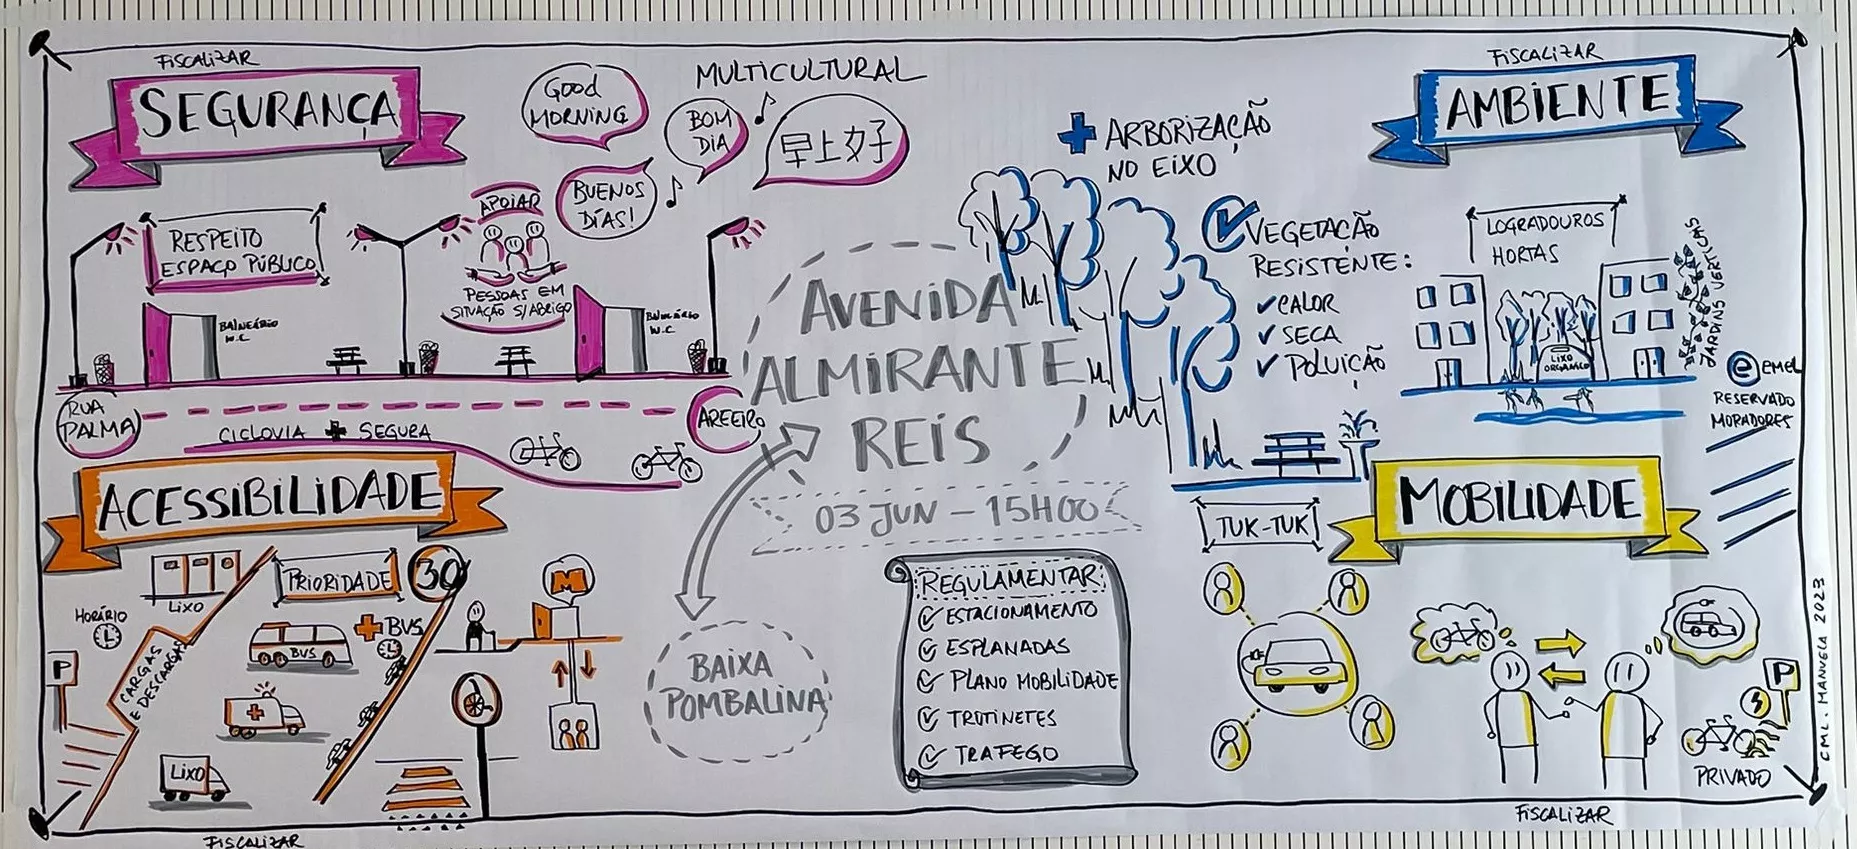 FiSCALiZAR
SEGURANÇA
Good
MORNING
MULTICULTURAL
BOM
DIA
早上好子
BUENOS
DÍAS!
APOiAR
PESSOAS EM
SITUAÇÃO S/ABRIGO
RESPEITO
ESPAÇO PÚBLICO
BALNEÁRIO
W.C
BALNEÁRIO
W.C
RUA
PALMA
AREEIRO
CICLOVIA + SEGURA
FiSCALiZAR
AMBIENTE
+ ARBORIZAÇÃO
NO EiXO
VEGETAÇÃO
RESISTENTE:
CALOR
SECA
POLUIÇÃO
LOGRADOUROS
HORTAS
JARDINS VERTICAIS
LIXO
ORGANICO
e emel
RESERVADO
MORADORES
AVENiDA
ALMiRANTE
REiS
03 JUN - 15H00
BAIXA
POMBALINA
ACESSiBiLiDADE
PRIORIDADE
30
LiXO
HORÁRIO
P
CARGAS
E DESCARGAS
BUS
+BUS
LiXO
M
REGULAMENTAR:
ESTACIONAMENTO
ESPLANADAS
PLANO MOBILIDADE
TROTINETES
TRAFEGO
MOBILIDADE
TUK-TUK
P
PRIVADO
CML. MANUELA 2023
FiSCALiZAR
FiSCALiZAR